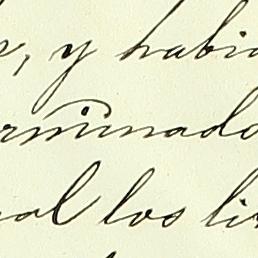 , y habia
erminado
al los li